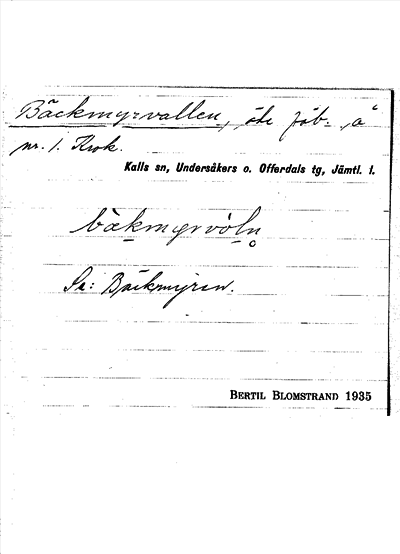 Bäckmyrvallen, öde fäb. å
nr. 1. Krok.
Kalls sn, Undersåkers o. Offerdals tg, Jämtl. l.
bäkmyrvòln̥
Sa: Bäckmyren.
BERTIL BLOMSTRAND 1935